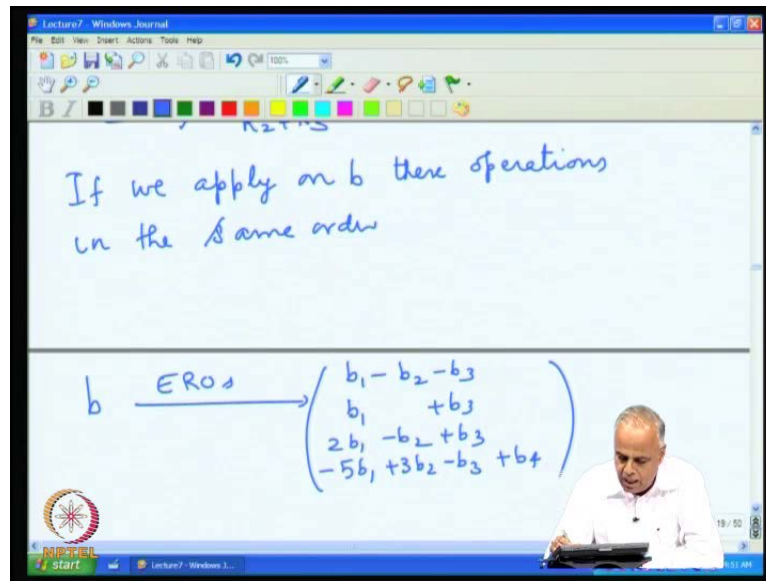 Lecture7 - Windows Journal
File Edit View Insert Actions Tools Help
100%
B I
R2+R3
If we apply on b these operations
in the same order
b EROs
b1 - b2 - b3
b1 + b3
2b1 - b2 + b3
-5b1 + 3b2 - b3 + b4
19 / 50
NPTEL
start Lecture7 - Windows J...
:51 AM